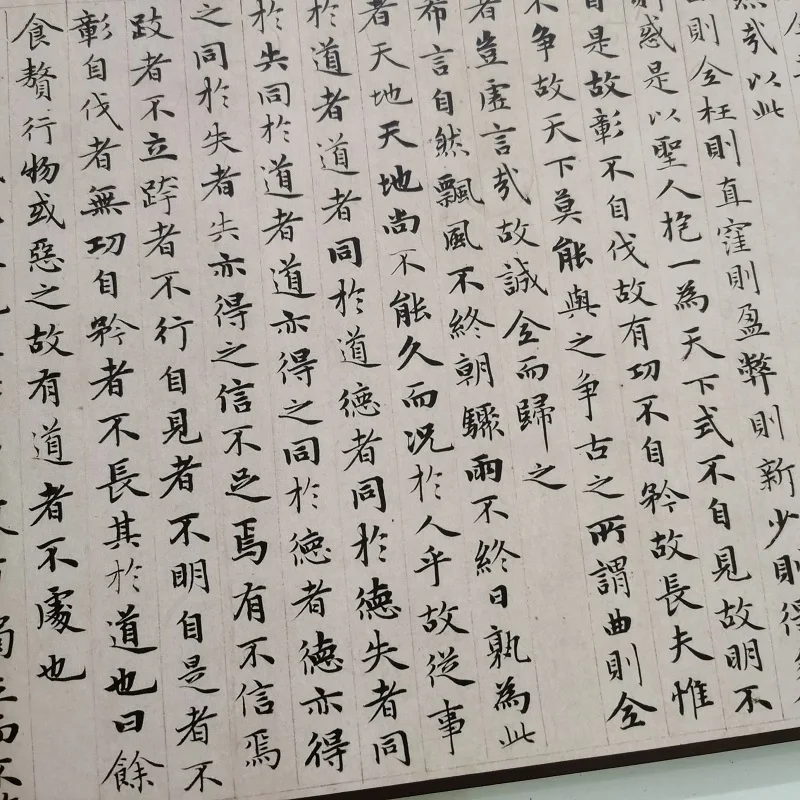 然哉以此
則全枉則直窪則盈弊則新少則得
則惑是以聖人抱一為天下式不自見故明不
自是故彰不自伐故有功不自矜故長夫惟
不争故天下莫能與之争古之所謂曲則全
者豈虛言哉故誠全而歸之
希言自然飄風不終朝驟雨不終日孰為此
者天地天地尚不能久而況於人乎故從事
於道者道者同於道德者同於德失者同
於失同於道者道亦得之同於德者德亦得
之同於失者失亦得之信不足焉有不信焉
跂者不立跨者不行自見者不明自是者不
彰自伐者無功自矜者不長其於道也曰餘
食贅行物或惡之故有道者不處也
立而不